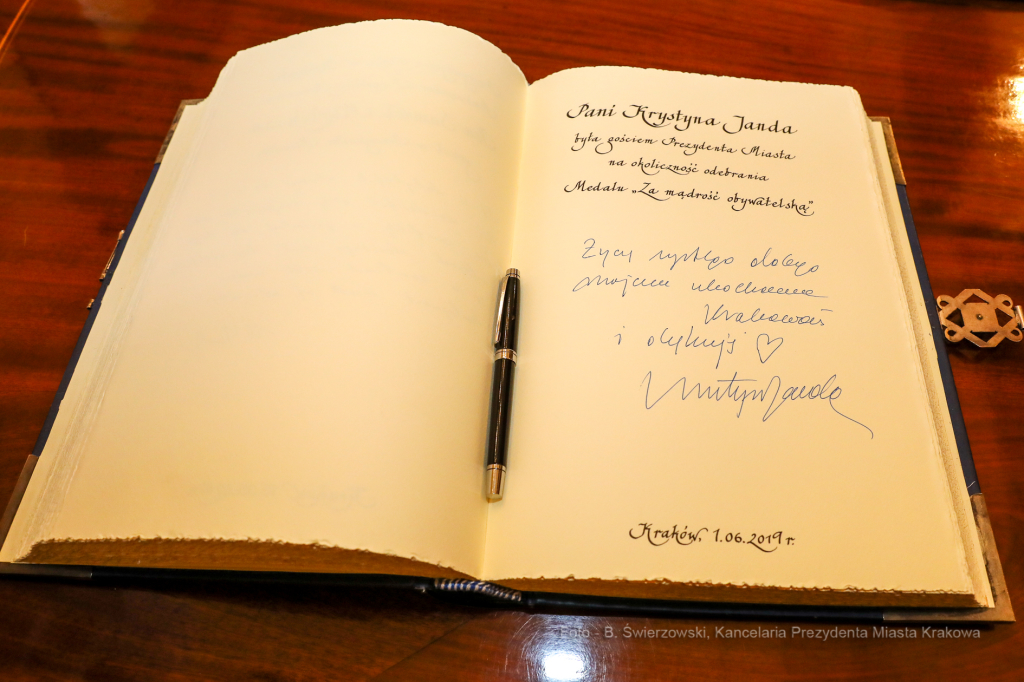 Pani Krystyna Janda
była gościem Prezydenta Miasta
na okoliczność odebrania
Medalu „Za mądrość obywatelską”
Życzę wszystkiego dobrego
mojemu ukochanemu
Krakowowi
i dziękuję ♡
Krystyna Janda
Kraków, 1.06.2019 r.
Foto - B. Świerzowski, Kancelaria Prezydenta Miasta Krakowa